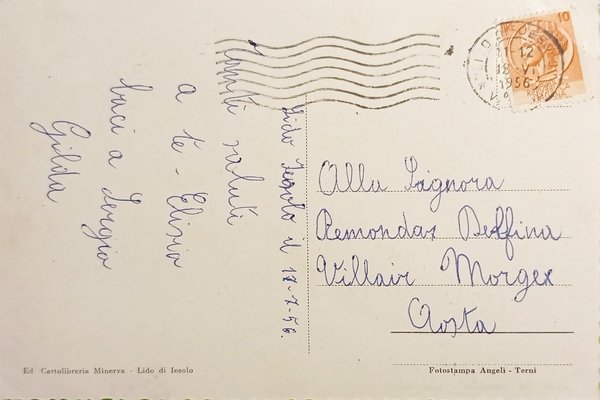 Lido Jesolo il 17-7-56.
Tanti saluti
a te - Elisio
baci a Sergio
Gilda
10
12
1956
Alla Signora
Remondaz Delfina
Villair Morgex
Aosta
Ed Cartolibreria Minerva - Lido di Iesolo
Fotostampa Angeli - Terni